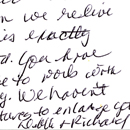 n we relive
is exactly
d. You have
e to work with
g. We haven't
tures to enlarge
Keith & Richard